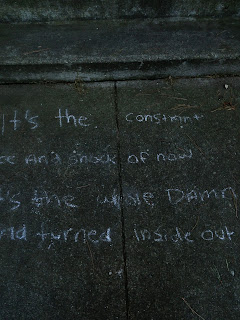 It's the constant
ce And shock of now
t's the whole DAMN
rld turned inside out